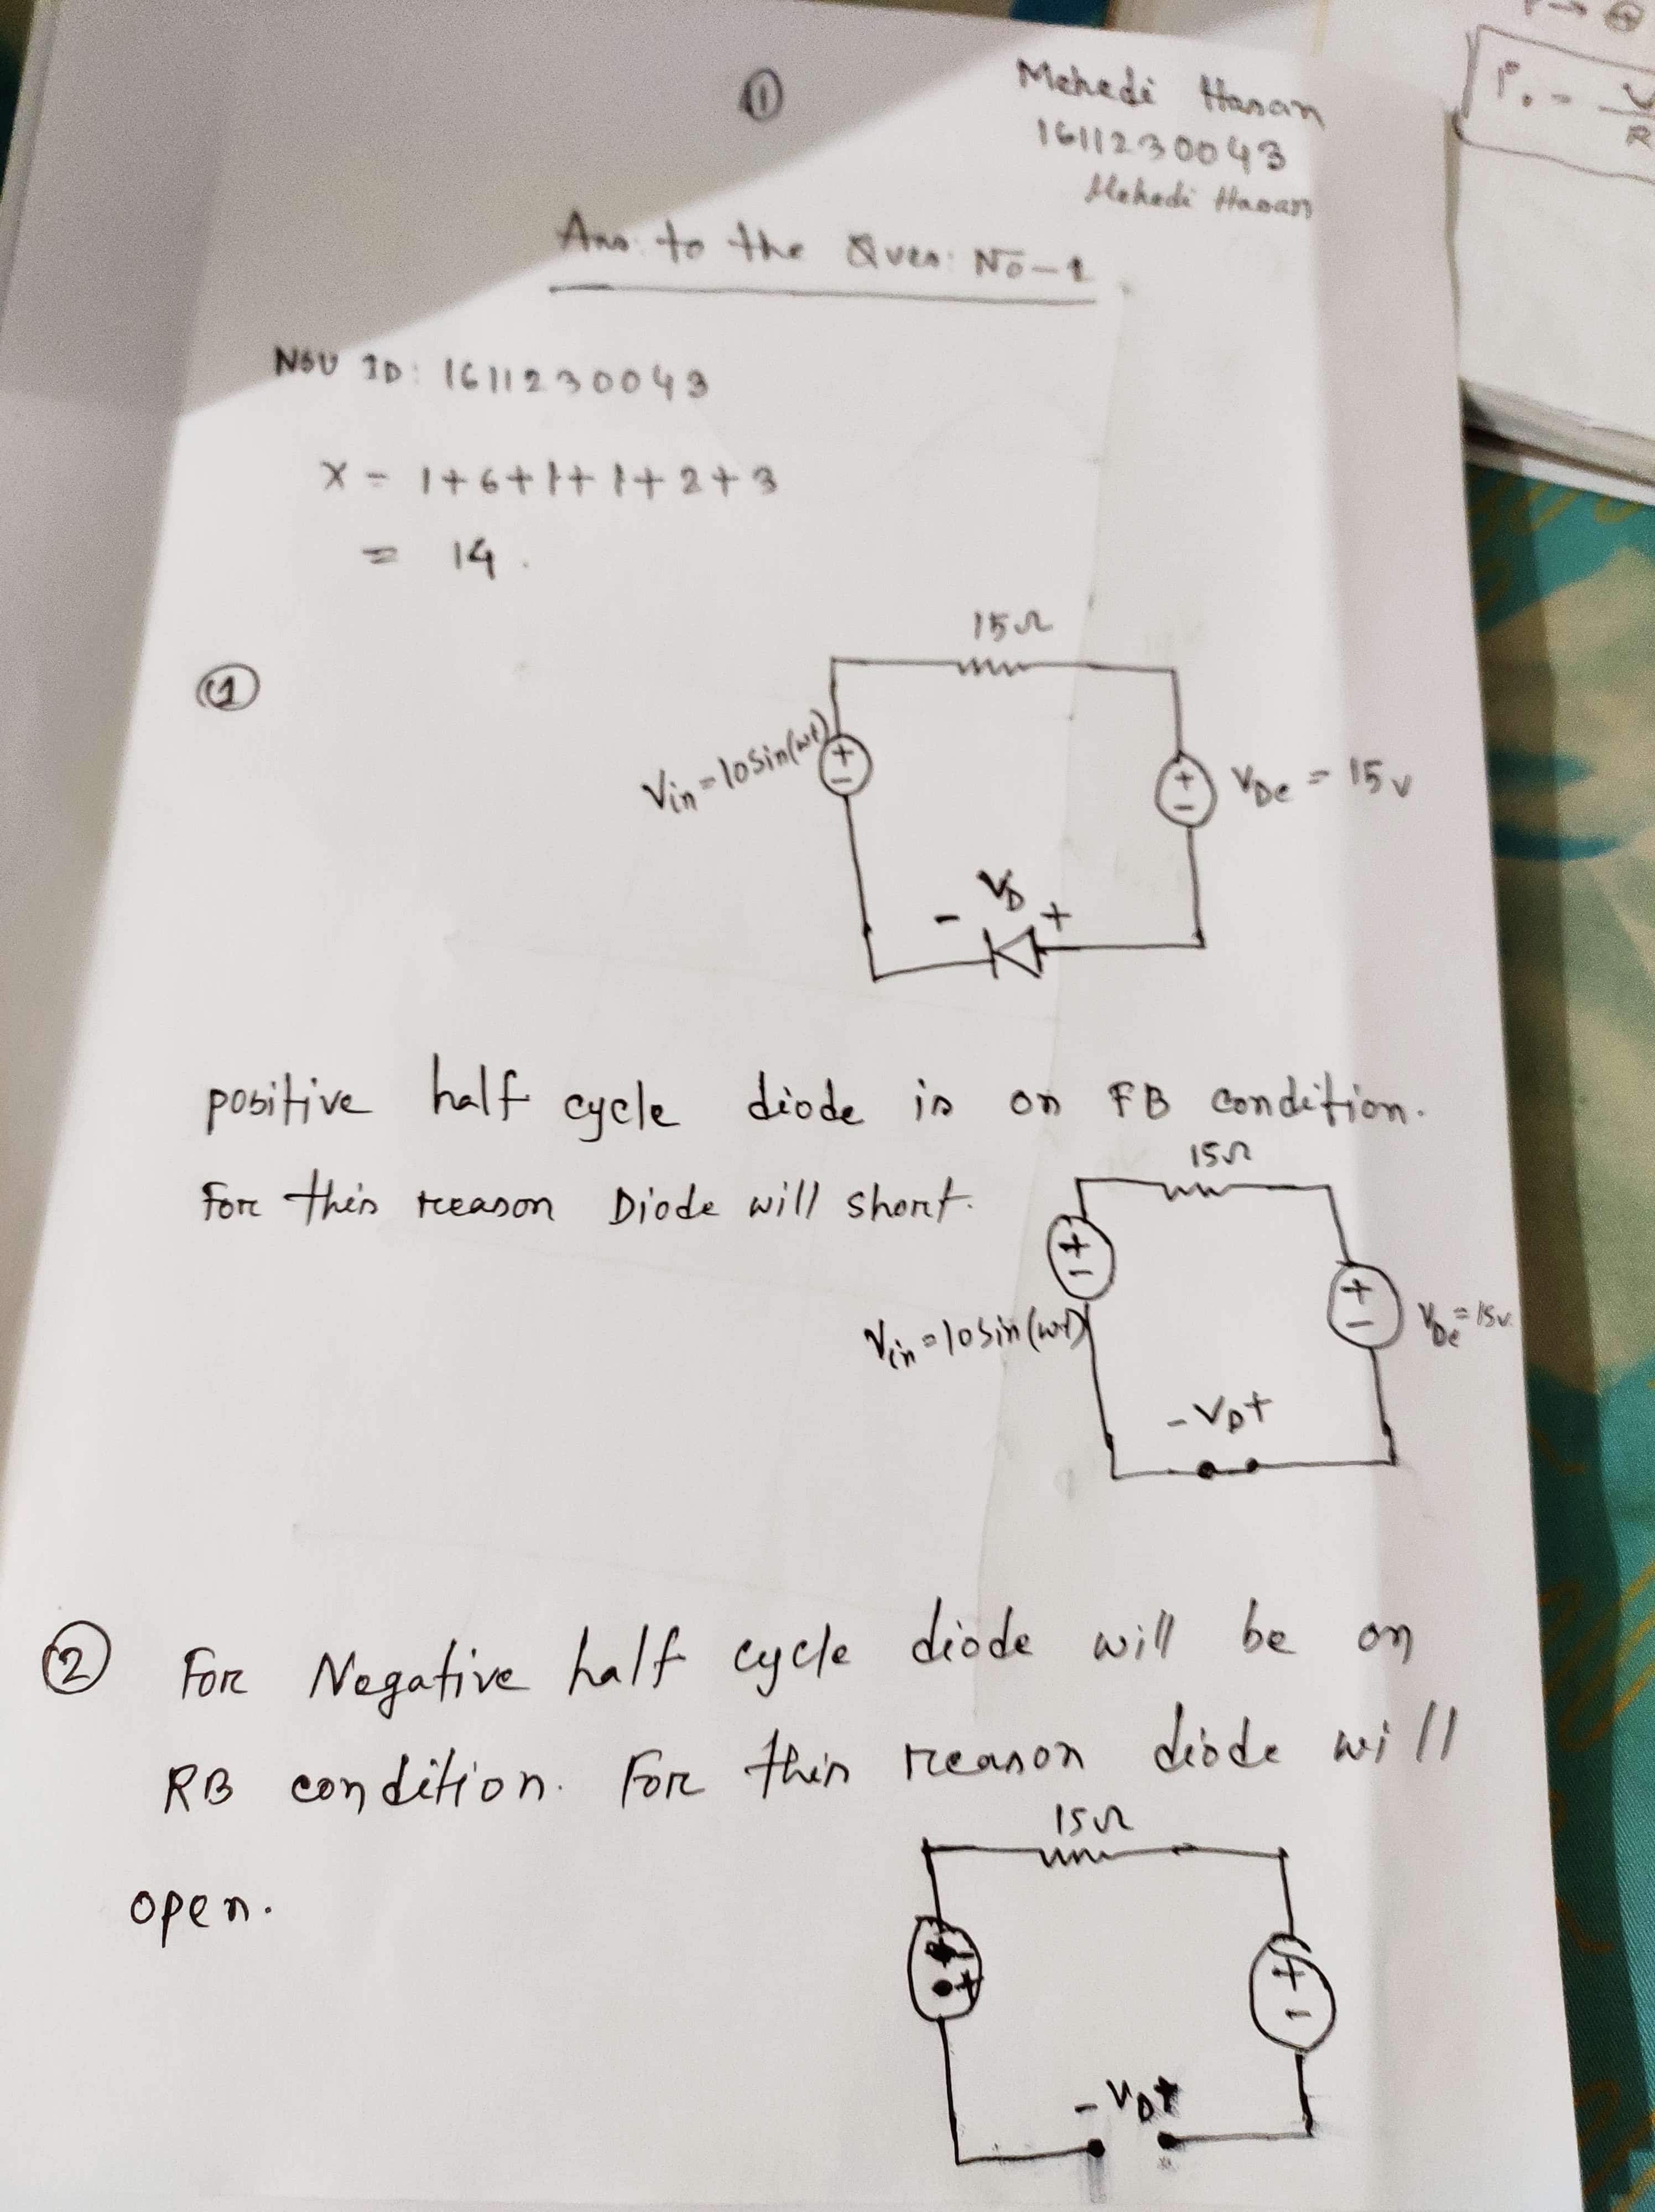 ①
Mehedi Hasan
1611230043
Mehedi Hasan
Ans: to the Ques: No-1
NSU ID: 1611230043
X = 1+6+1+1+2+3
= 14.
①
15Ω
Vin = 10sin(wt)
+
-
+
-
VDC = 15v
- VD +
positive half cycle diode is on FB condition.
For this reason Diode will short.
15Ω
+
-
+
-
Vin = 10sin(wt)
VDC = 15v.
- VD +
② For Negative half cycle diode will be on
RB condition. For this reason diode will
open.
15Ω
-
+
+
-
- VD +
r → ⊕
P. = V
R